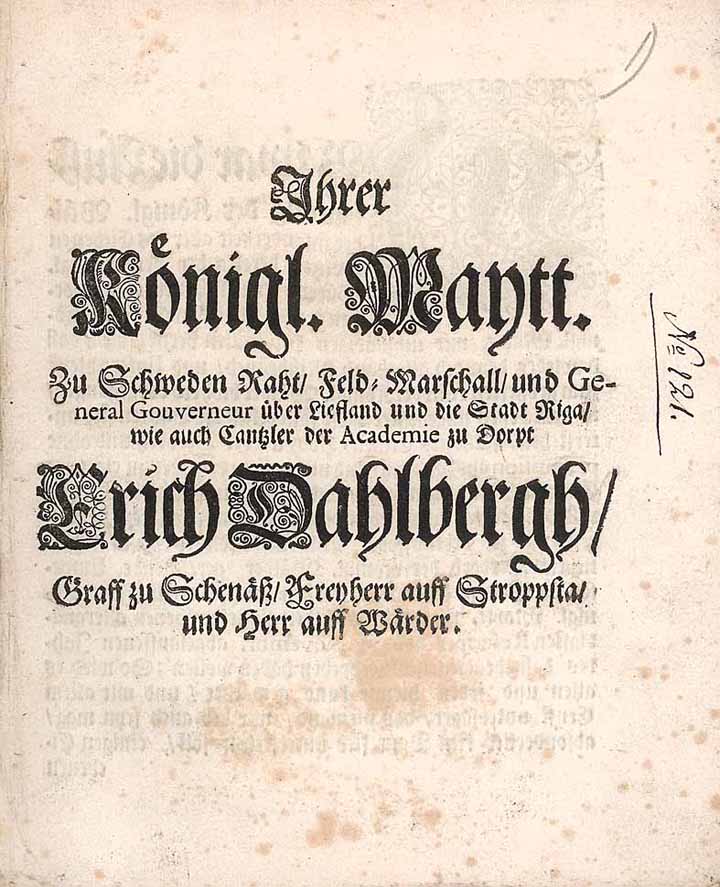 Ihrer
Koͤnigl. Maytt.
Zu Schweden Raht/ Feld-Marschall/ und Ge-
neral Gouverneur über Liefland und die Stadt Riga/
wie auch Cantzler der Academie zu Dorpt
Erich Dahlbergh/
Graff zu Schenäß/ Freyherr auff Stroppsta/
und Herr auff Wärder.
No 121.